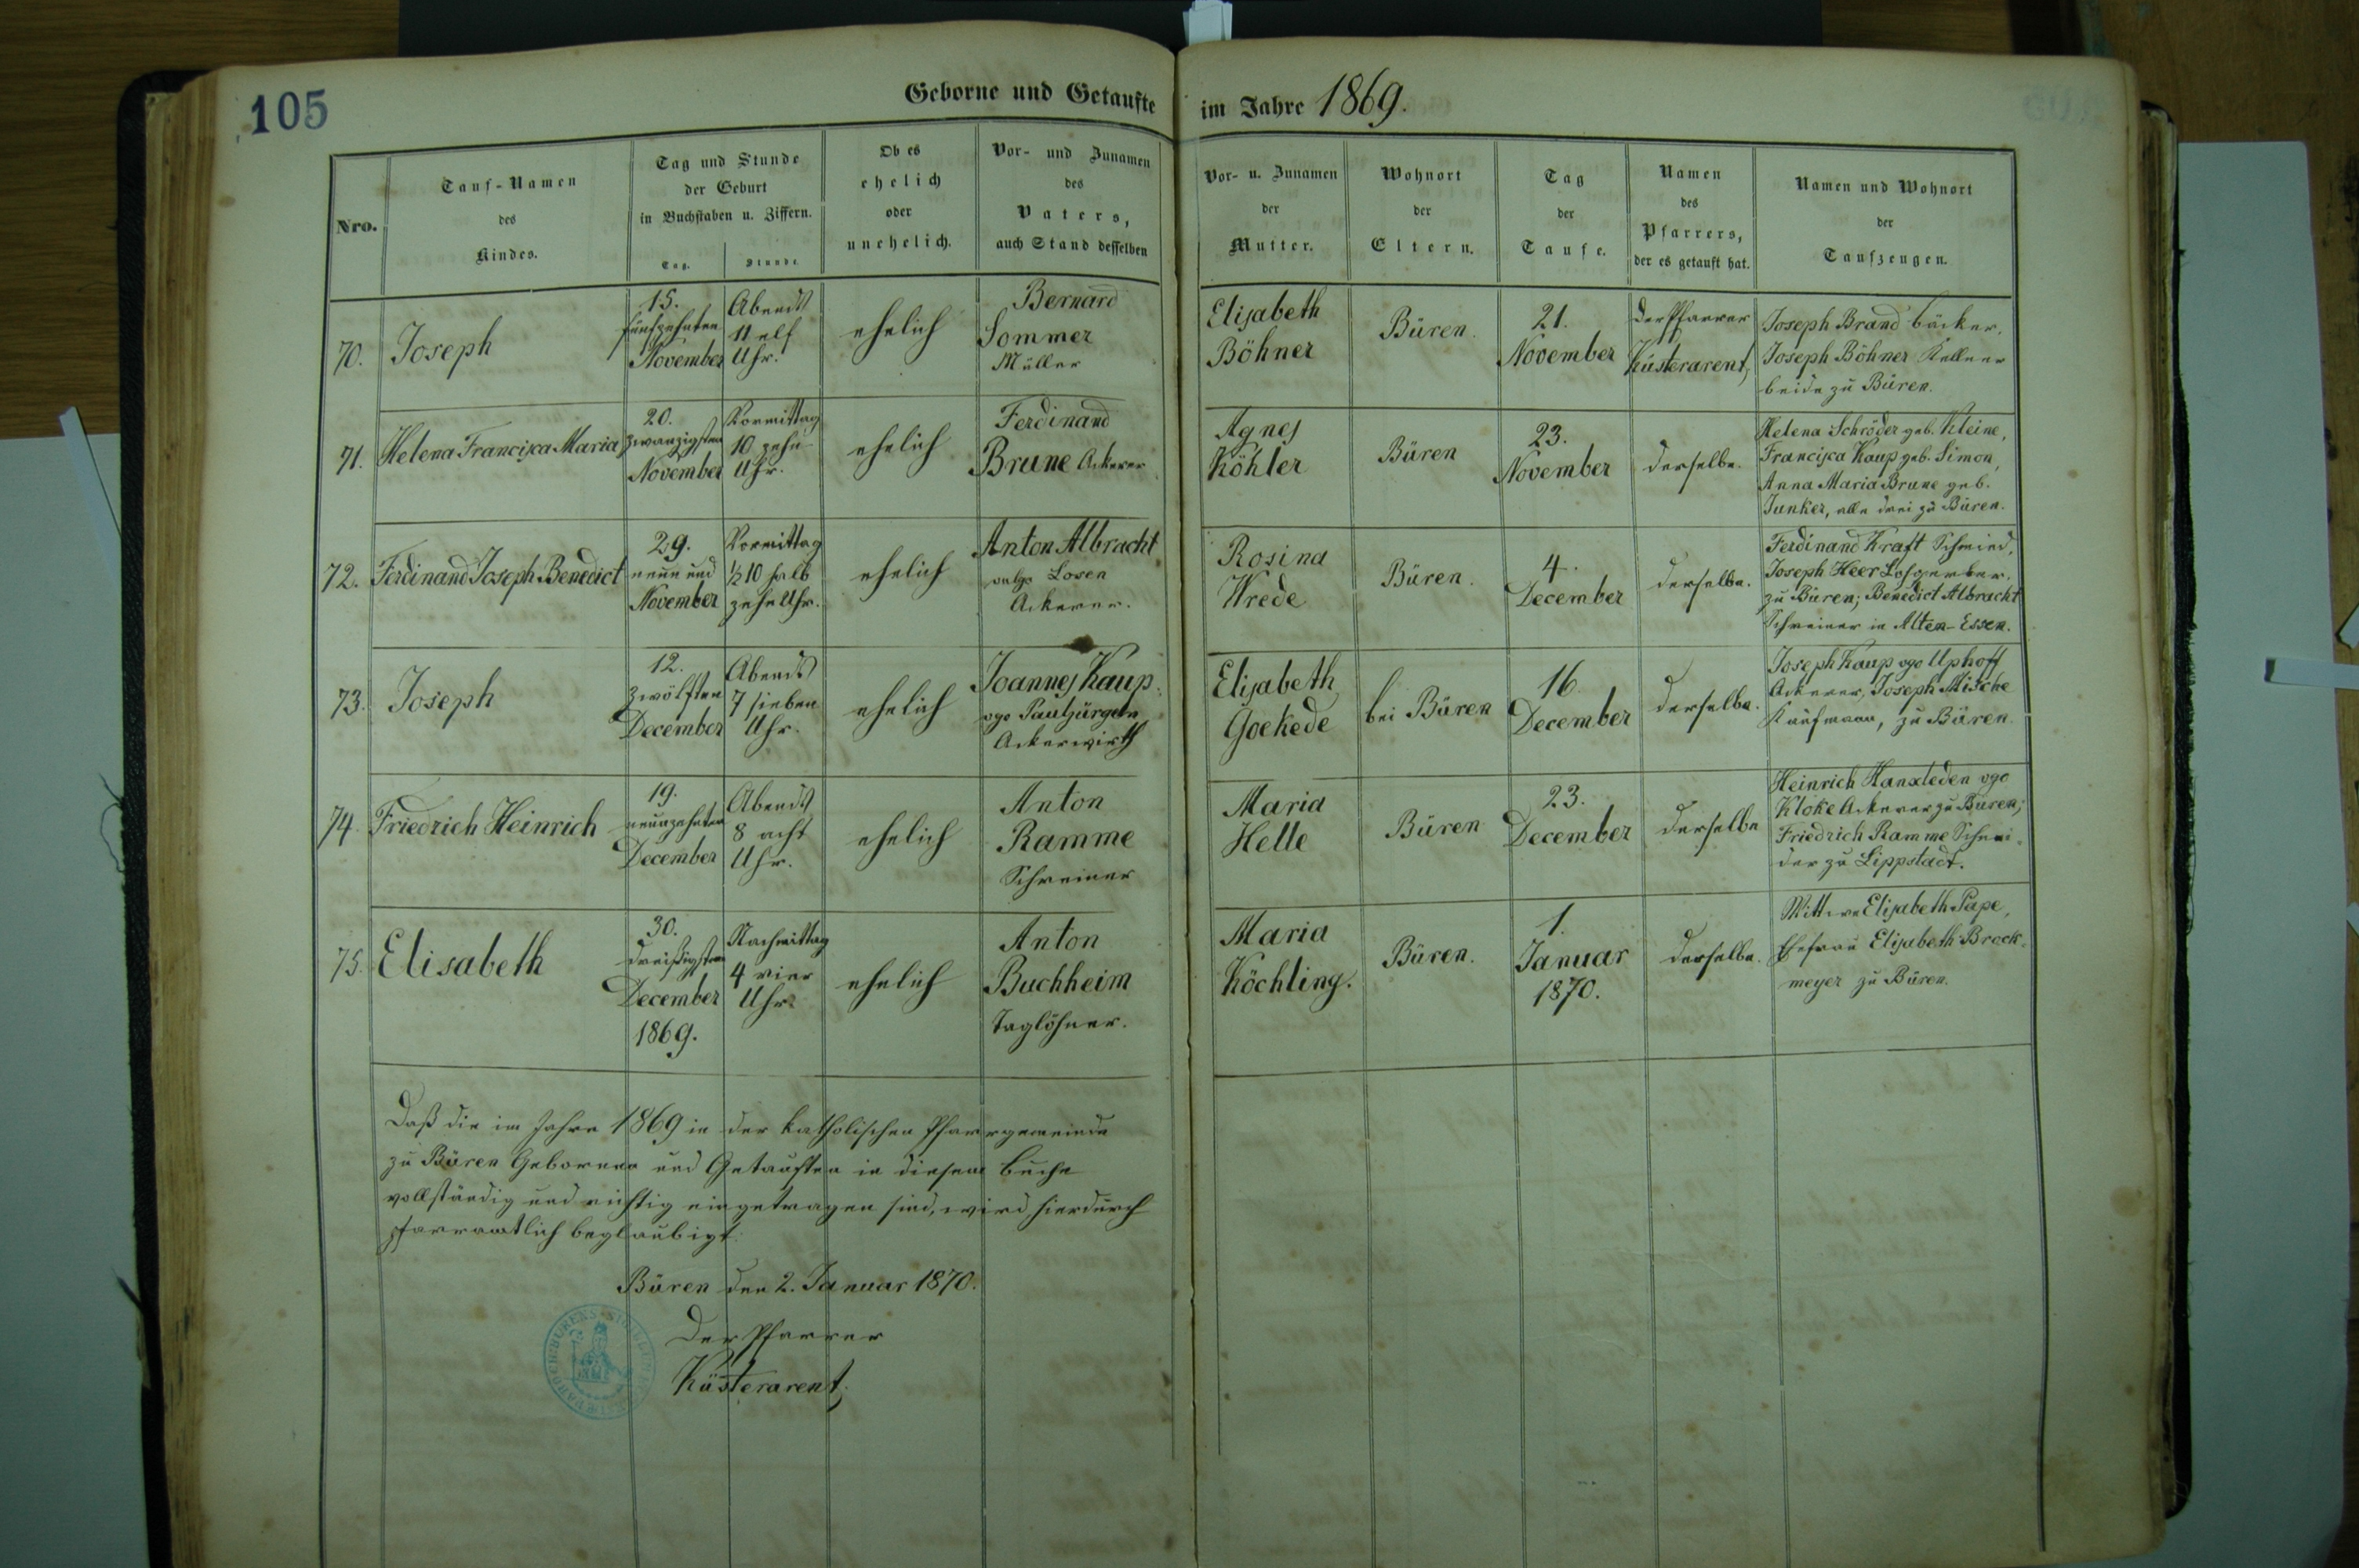 105
Geborne und Getaufte im Jahre 1869.
Nro.
Tauf-Namen
des
Kindes.
Tag und Stunde
der Geburt
in Buchstaben u. Ziffern.
Tag.
Stunde
Ob es
ehelich
oder
unehelich.
Vor- und Zunamen
des
Vaters,
auch Stand desselben
Vor- u. Zunamen
der
Mutter.
Wohnort
der
Eltern.
Tag
der
Taufe.
Namen
des
Pfarrers,
der es getauft hat.
Namen und Wohnort
der
Taufzeugen.
70.
Joseph
15.
fünfzehnten
November
Abends
11 elf
Uhr.
ehelich
Bernard
Sommer
Müller
Elisabeth
Böhner
Büren.
21.
November
Der Pfarrer
Küsterarent,
Joseph Brand Bäcker,
Joseph Böhner Kellner
beide zu Büren.
71.
Helena Francisca Maria
20.
zwanzigsten
November
Vormittag
10 zehn
Uhr.
ehelich
Ferdinand
Brune Ackerer
Agnes
Köhler
Büren
23.
November
derselbe.
Helena Schröder geb. Kleine,
Francisca Kaup geb. Simon,
Anna Maria Brune geb.
Junker, alle drei zu Büren.
72.
Ferdinand Joseph Benedict
29.
neun und
November
Vormittag
½10 halb
zehn Uhr.
ehelich
Anton Albracht
vulgo Losen
Ackerer.
Rosina
Wrede
Büren.
4.
December
derselbe.
Ferdinand Kraft Schmied,
Joseph Heer Lohgerber.
zu Büren; Benedict Albracht
Schreiner in Alten-Essen.
73.
Joseph
12.
zwölften
December
Abends
7 sieben
Uhr.
ehelich
Joannes Kaup
vgo Pauljürgeln
Ackerwirth
Elisabeth
Goekede
bei Büren
16
December
derselbe.
Joseph Kaup vgo Uphoff
Ackerer, Joseph Mische
Kaufmann, zu Büren.
74.
Friedrich Heinrich
19.
neunzehnten
December
Abends
8 acht
Uhr.
ehelich
Anton
Ramme
Schreiner
Maria
Helle
Büren
23.
December
derselbe
Heinrich Hanxleden vgo
Kloke Ackerer zu Büren;
Friedrich Ramme Schnei-
der zu Lippstadt.
75.
Elisabeth
30.
dreißigsten
December
1869.
Nachmittag
4 vier
Uhr.
ehelich
Anton
Buchheim
Taglöhner.
Maria
Köchling.
Büren.
1.
Januar
1870.
derselbe.
Wittwe Elisabeth Pape,
Ehefrau Elisabeth Brock-
meyer zu Büren.
Daß die im Jahre 1869 in der katholischen Pfarrgemeinde
zu Büren Gebornen und Getauften in diesem Buche
vollständig und richtig eingetragen sind, wird hierdurch
pfarramtlich beglaubigt.
Büren den 2. Januar 1870.
Der Pfarrer
Küsterarent,